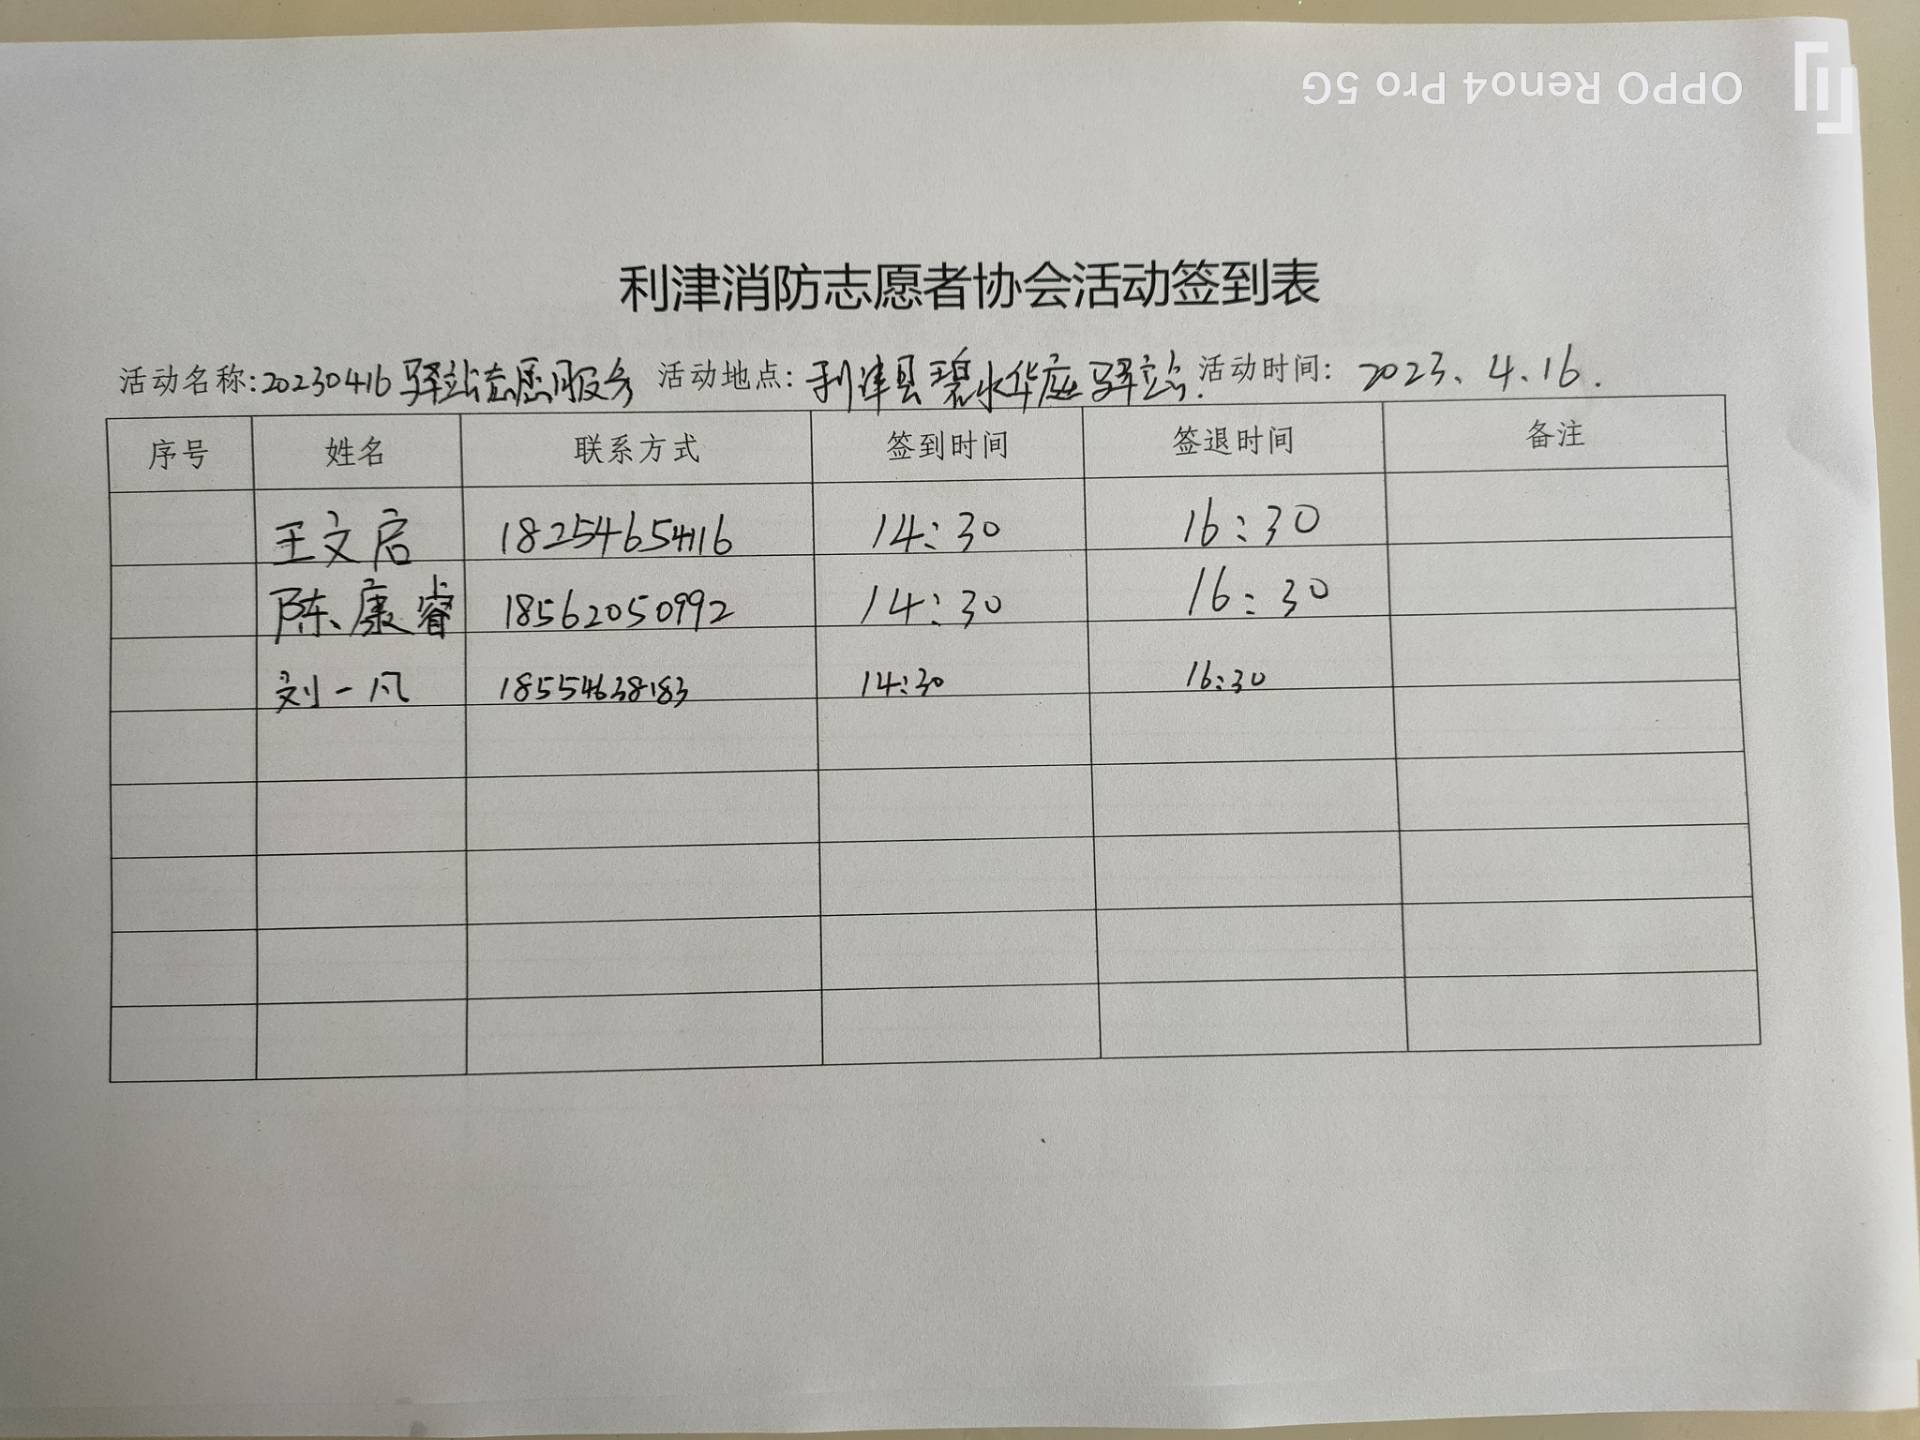 OPPO Reno4 Pro 5G
利津消防志愿者协会活动签到表
活动名称:20230416驿站志愿服务 活动地点:利津县碧水华庭驿站. 活动时间: 2023.4.16.
序号 姓名 联系方式 签到时间 签退时间 备注
王文启 18254654116 14:30 16:30
陈康睿 18562050992 14:30 16:30
刘一凡 18554638183 14:30 16:30